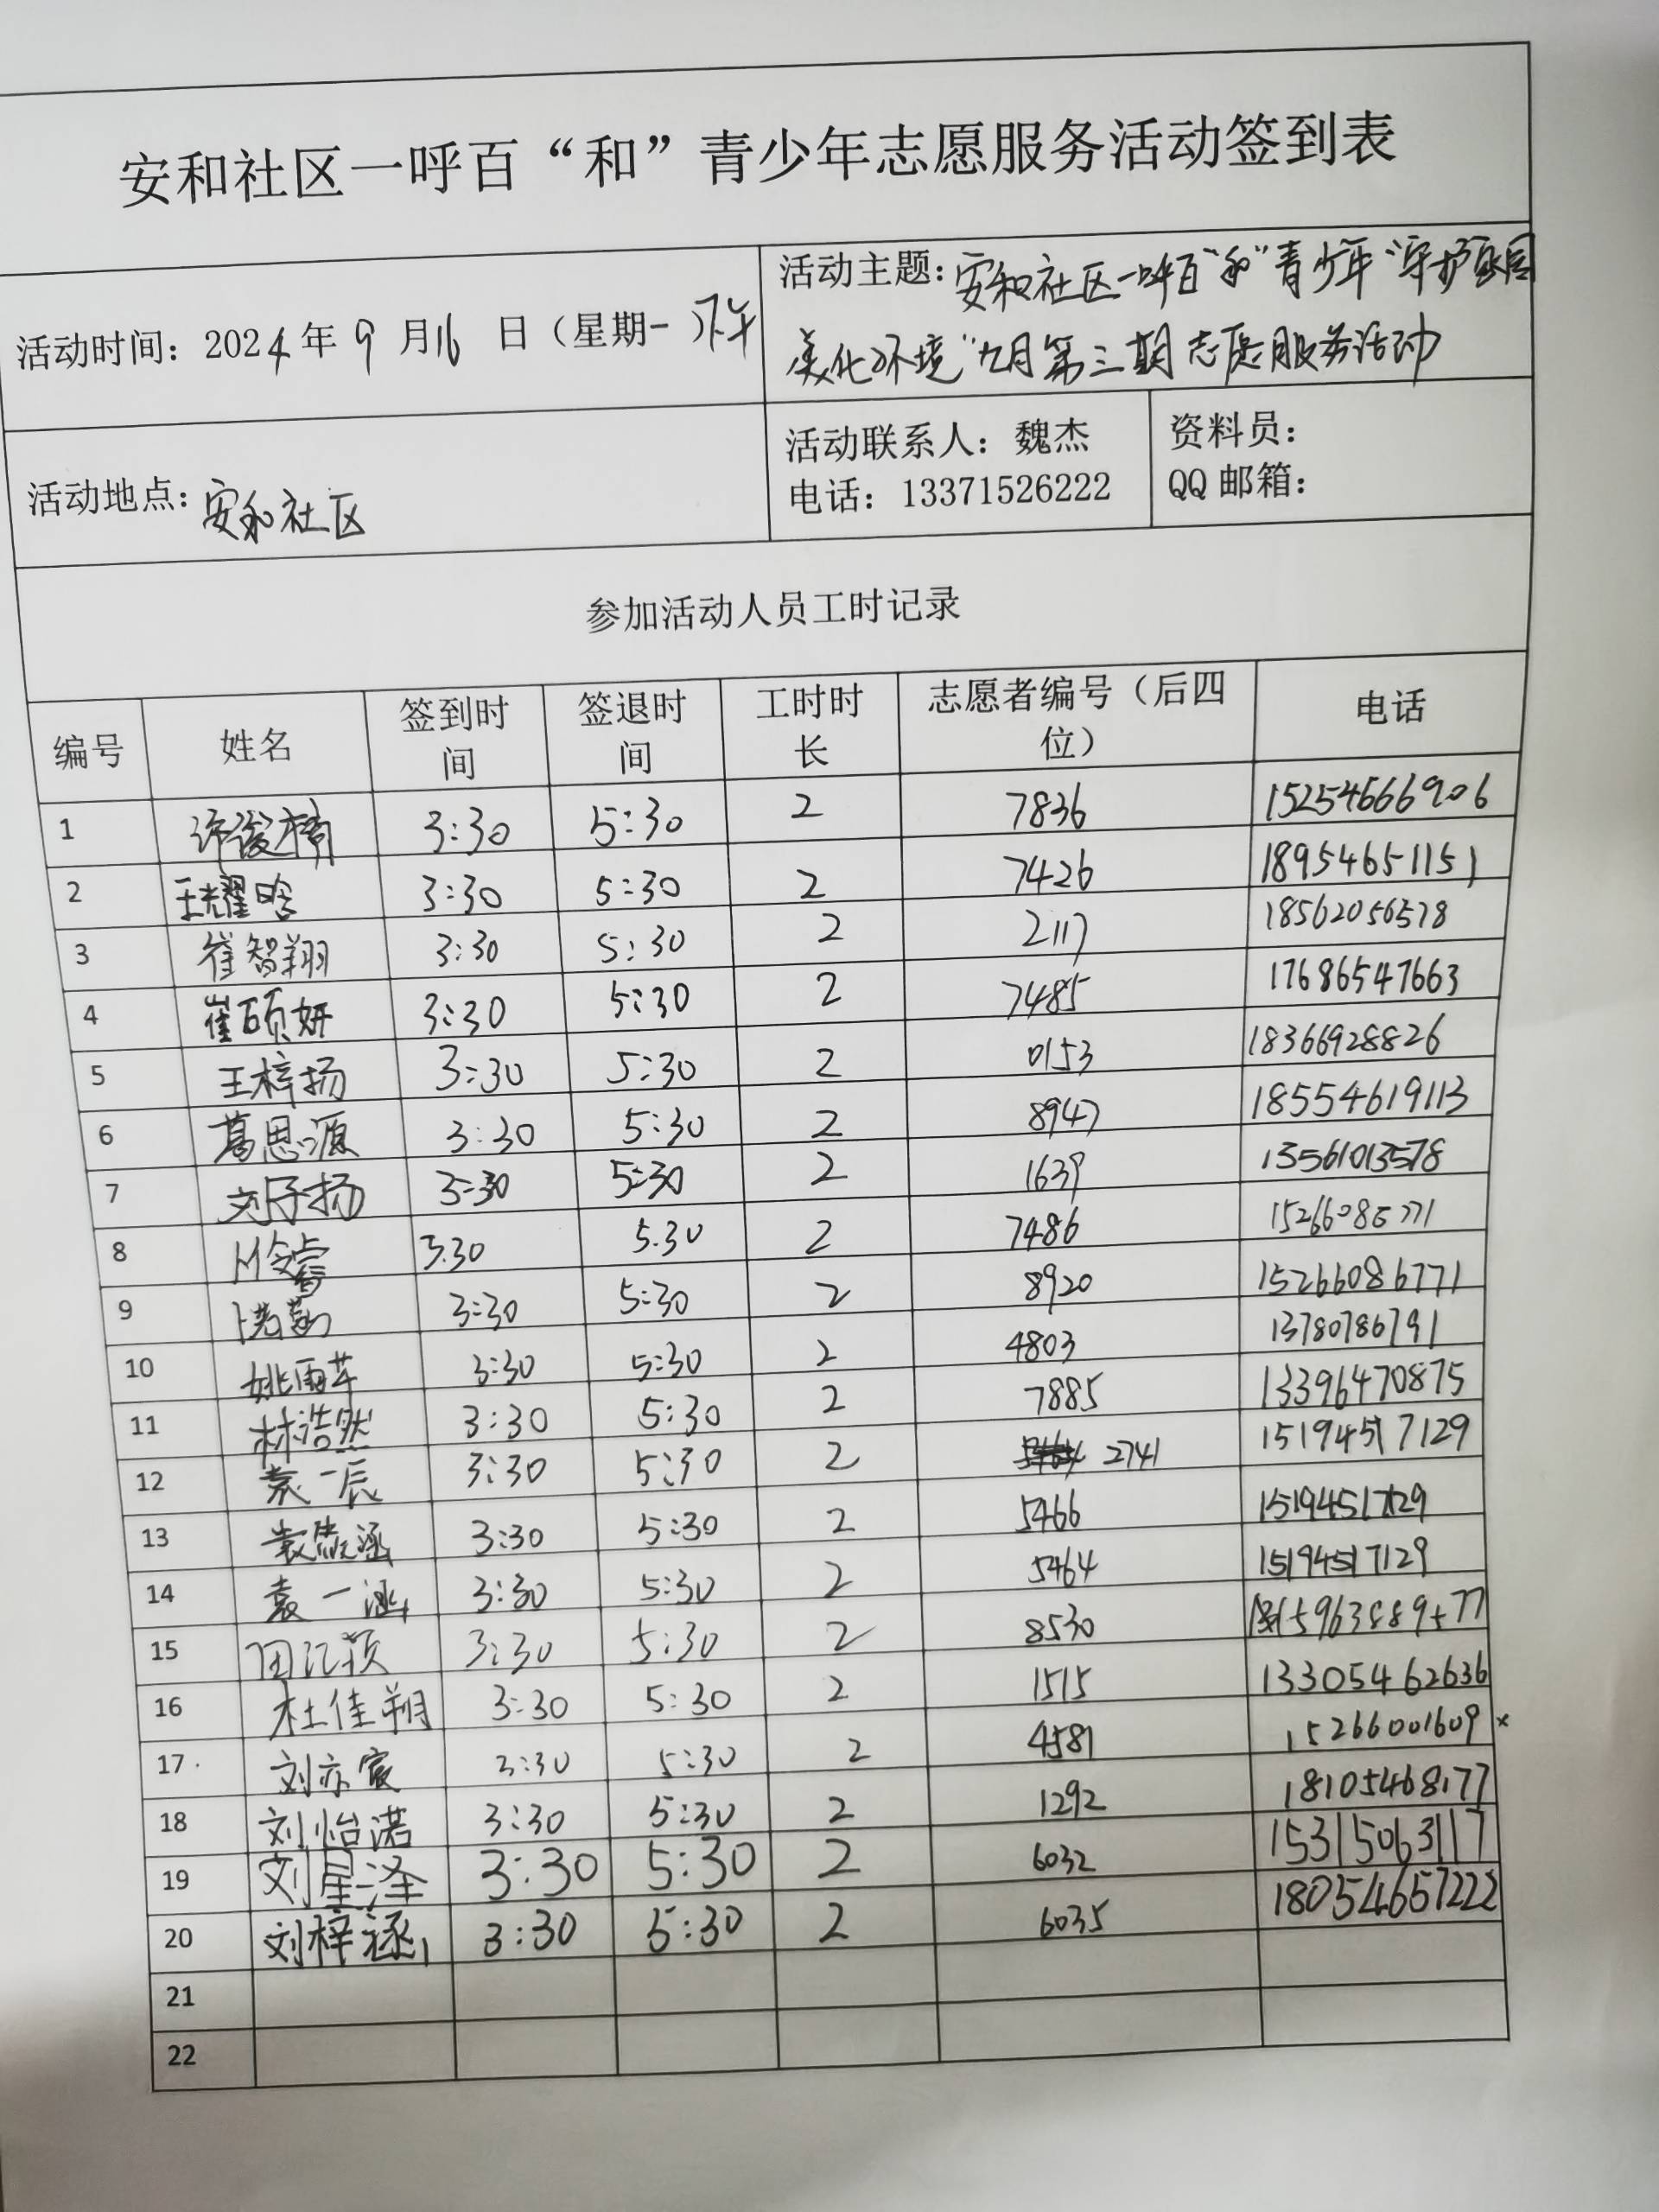 安和社区一呼百“和”青少年志愿服务活动签到表
活动时间：2024年 9 月16 日（星期一）下午
活动主题：安和社区一呼百“和”青少年“守护家园
美化环境”九月第三期志愿服务活动
活动地点：安和社区
活动联系人：魏杰
电话：13371526222
资料员：
QQ 邮箱：
参加活动人员工时记录
编号 姓名 签到时间 签退时间 工时时长 志愿者编号（后四位） 电话
1 许俊楠 3:30 5:30 2 7836 15254666906
2 王耀晗 3:30 5:30 2 7426 18954651151
3 崔智翔 3:30 5:30 2 2117 18562056578
4 崔硕妍 3:30 5:30 2 7485 17686547663
5 王梓扬 3:30 5:30 2 0153 18366928826
6 葛思源 3:30 5:30 2 8947 18554619113
7 刘子扬 3:30 5:30 2 1639 13561013578
8 3.30 5.30 2 7486
9 3:30 5:30 2 8920 15266086771
10 姚雨芊 3:30 5:30 2 4803 13780786791
11 林浩然 3:30 5:30 2 7885 13396470875
12 袁一辰 3:30 5:30 2 2741 15194517129
13 3:30 5:30 2 5466 15194517129
14 袁一涵 3:30 5:30 2 5464 15194517129
15 3:30 5:30 2 8530
16 杜佳翔 3:30 5:30 2 1515 13305462636
17 刘亦宸 3:30 5:30 2 4581 15266001609 ×
18 刘怡诺 3:30 5:30 2 1292 18105468177
19 刘星泽 3:30 5:30 2 6032 15315063117
20 刘梓涵 3:30 5:30 2 6035 18054657222
21
22